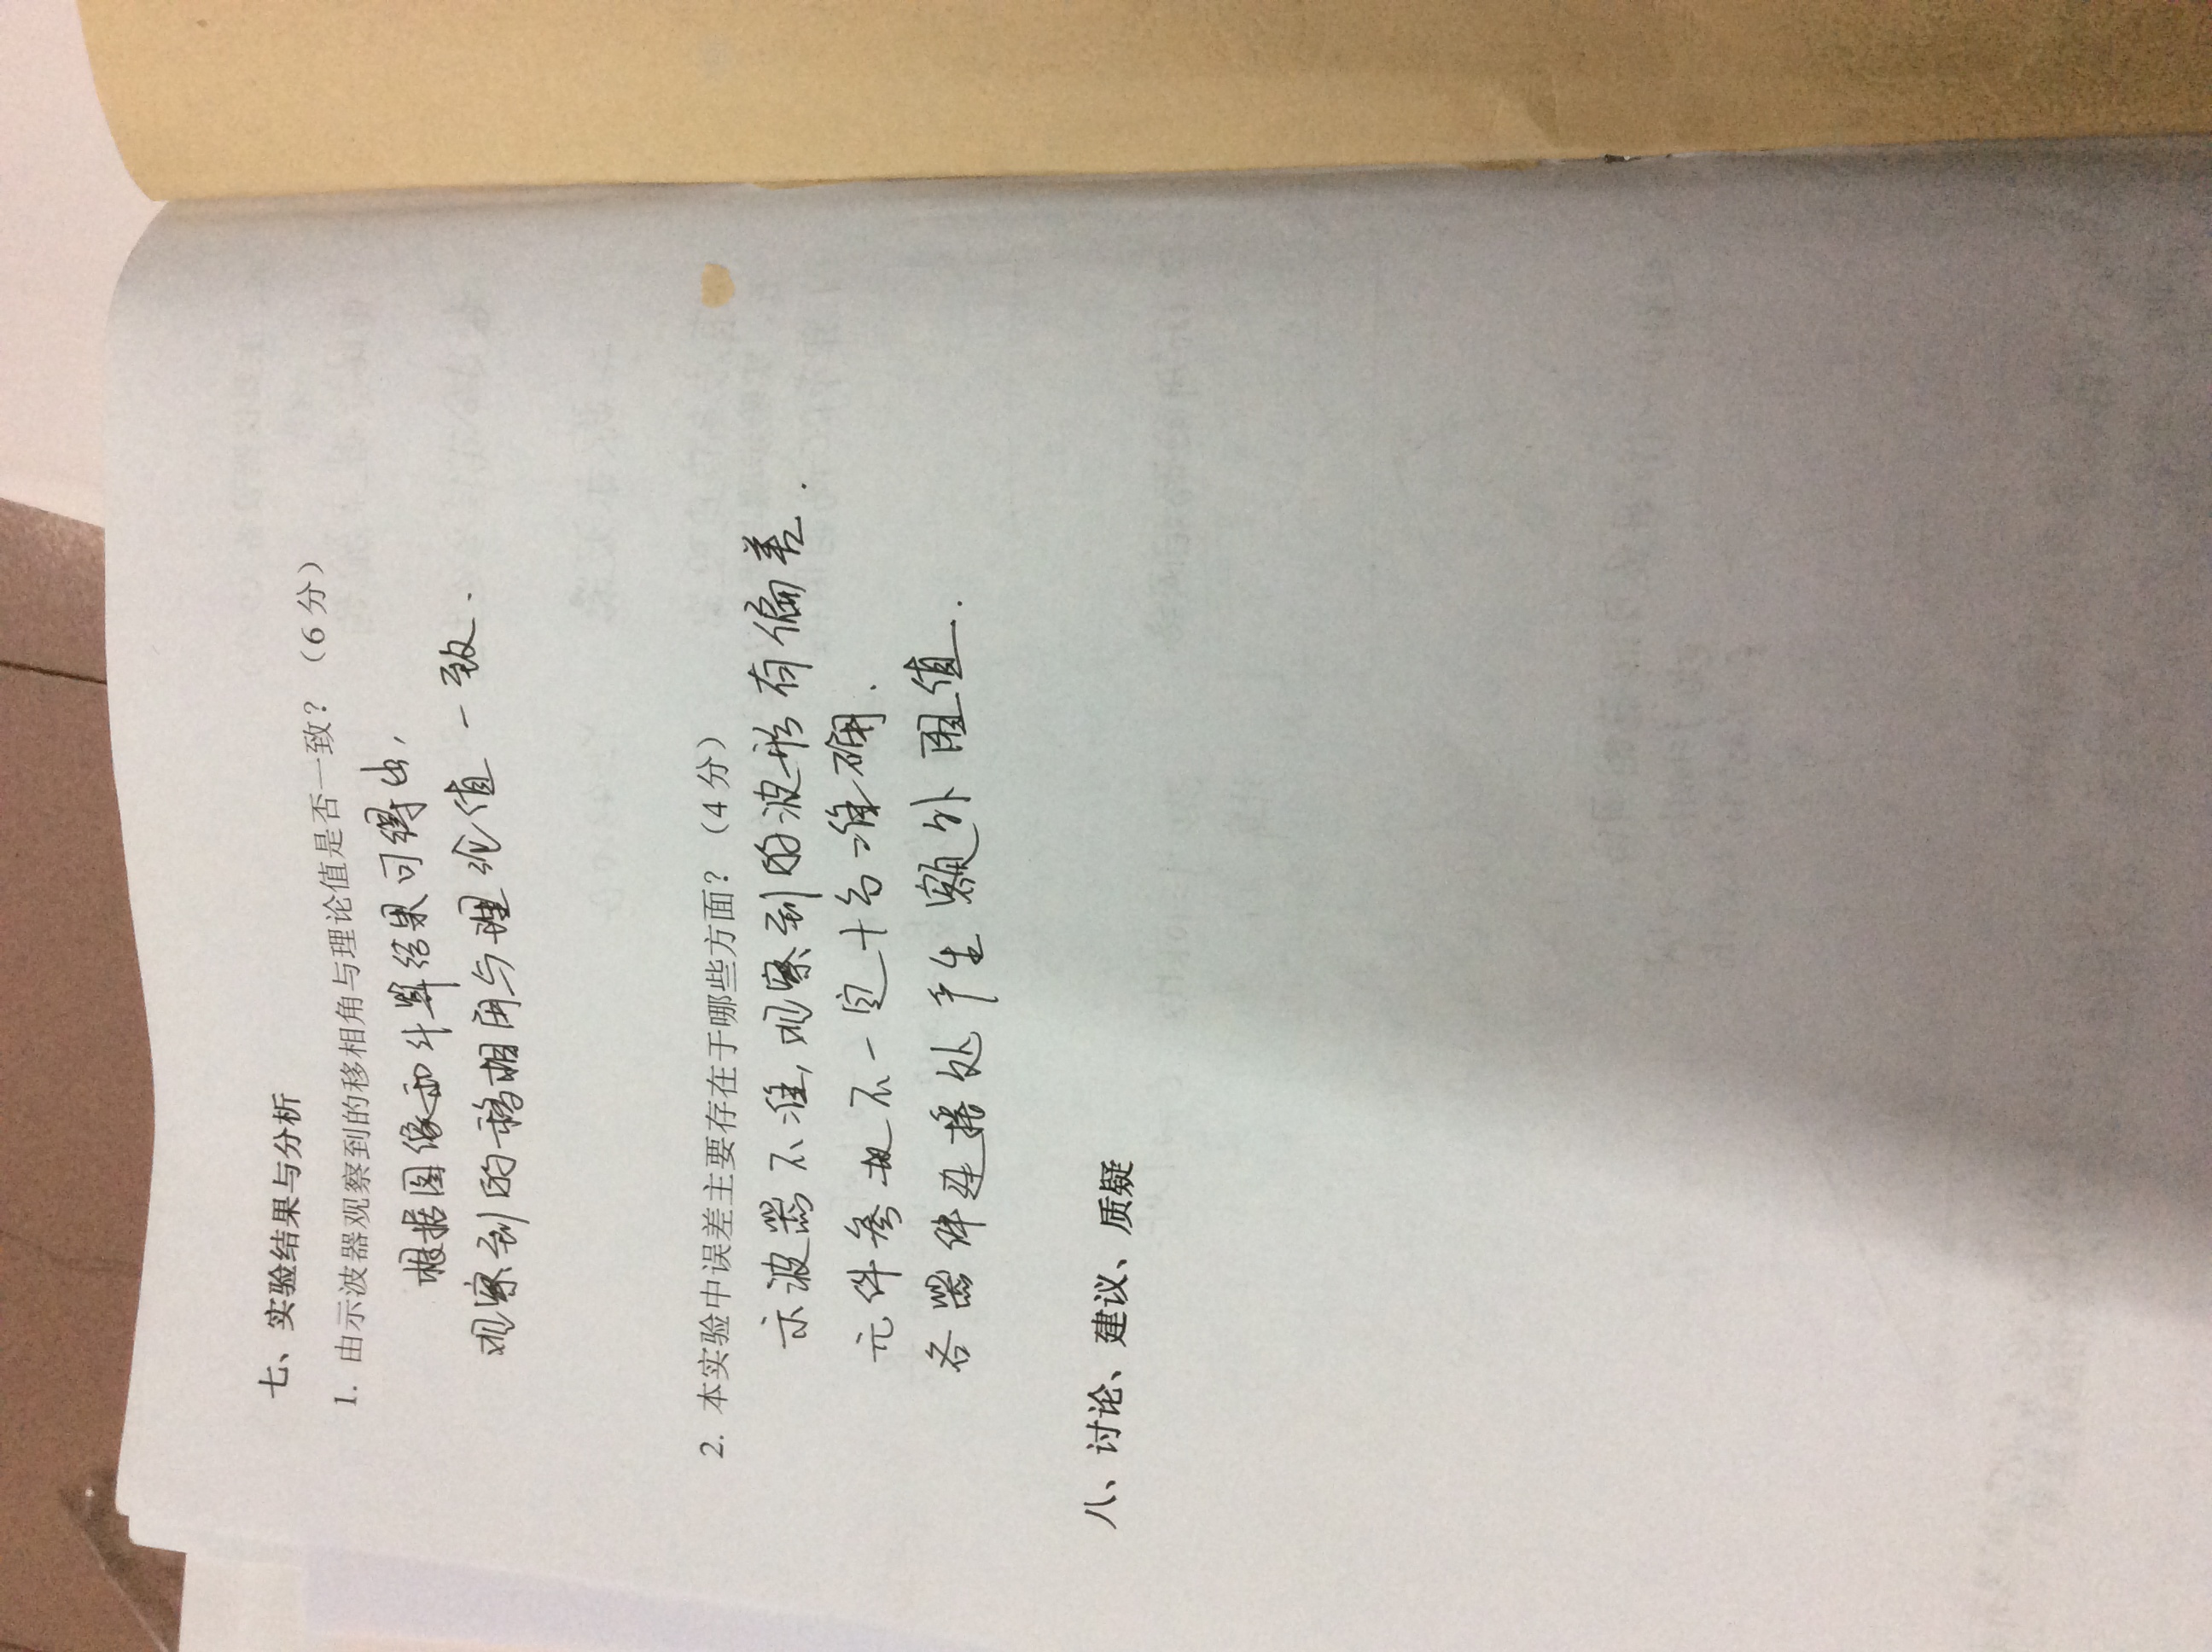 七、实验结果与分析
1. 由示波器观察到的移相角与理论值是否一致？（6 分）
根据图像和计算结果可得出，
观察到的移相角与理论值一致.
2. 本实验中误差主要存在于哪些方面？（4 分）
示波器不准,观察到的波形有偏差.
元件参数不一定十分准确.
各器件连接处产生额外阻值.
八、讨论、建议、质疑